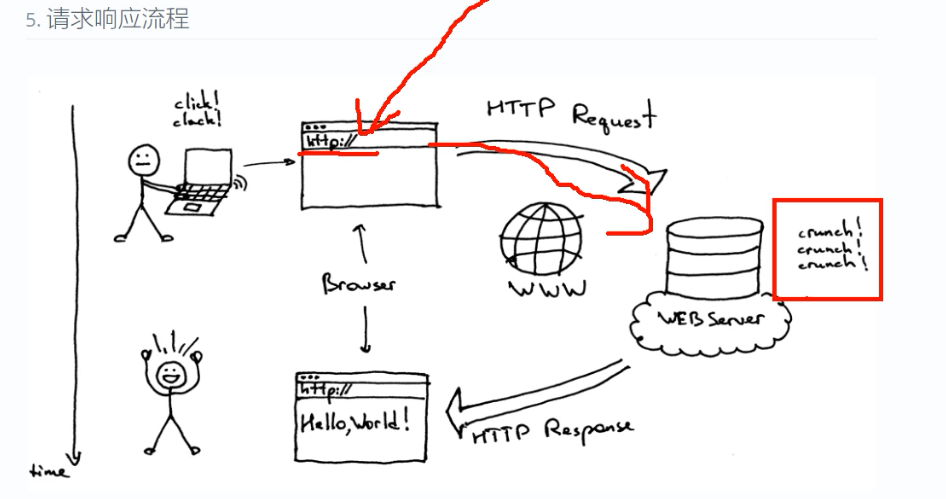 5. 请求响应流程
click!
clack!
http://
HTTP Request
crunch!
crunch!
crunch!
WWW
Browser
WEB Server
http://
Hello, World!
HTTP Response
time